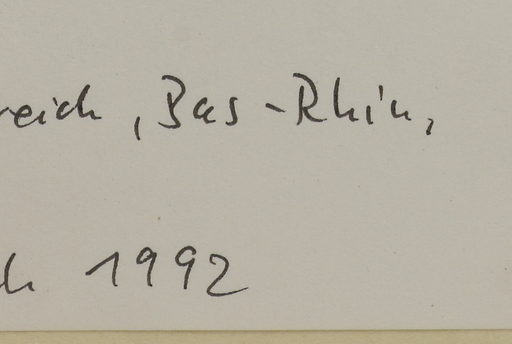 reich, Bas-Rhin,
1992